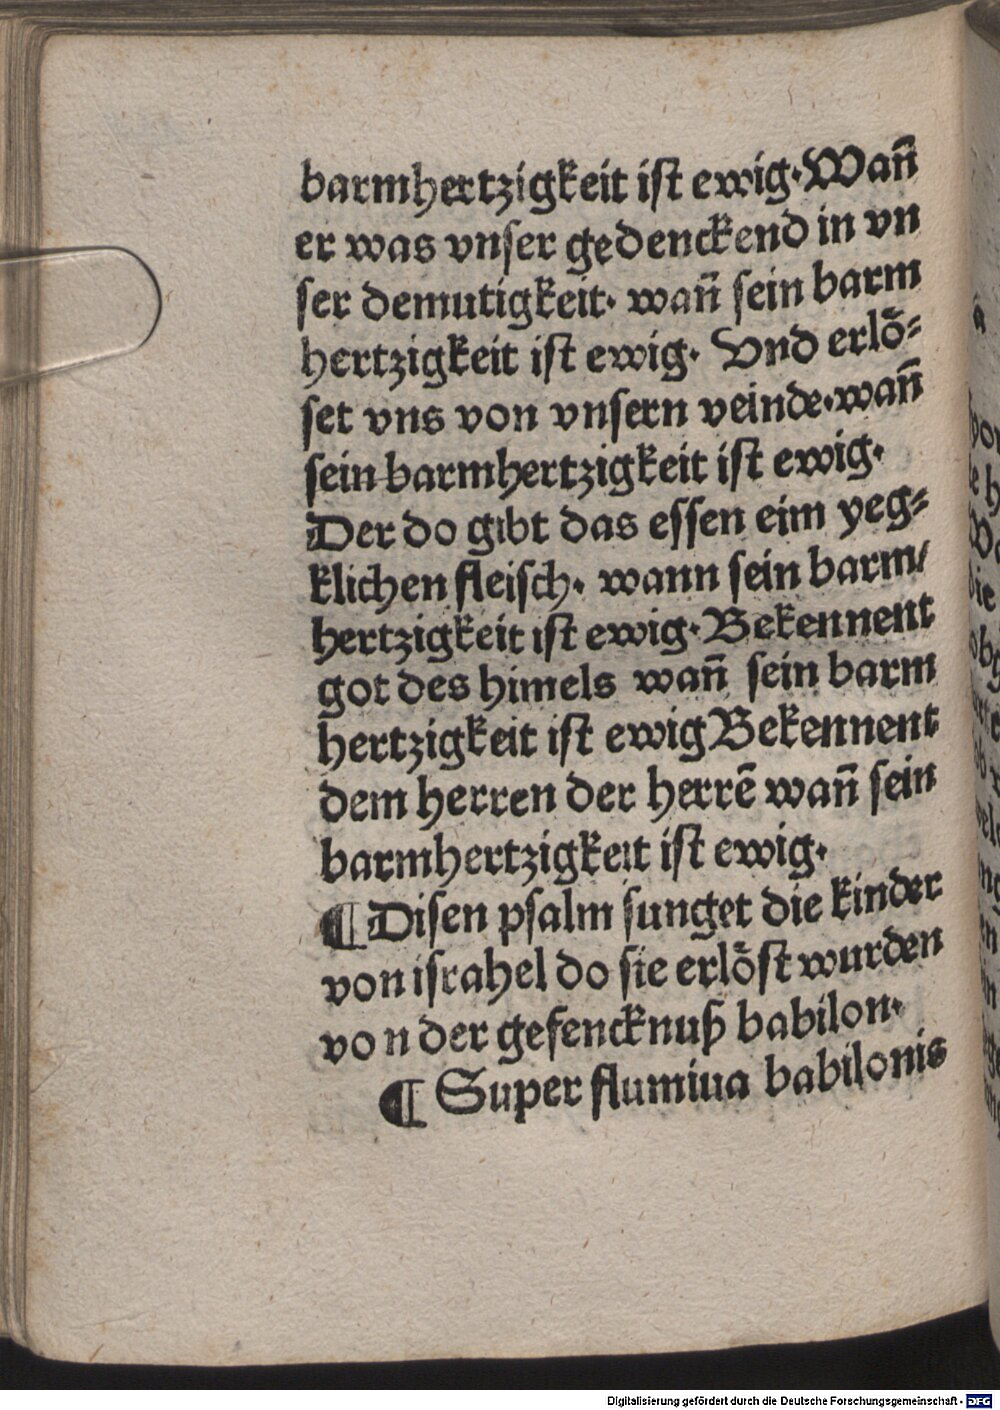 barmhertzigkeit ist ewig·Wan̄
er was vnser gedenckend in vn
ser demutigkeit· wan̄ sein barm
hertzigkeit ist ewig· Vnd erlo̊⸗
set vns von vnsern veinde·wan̄
sein barmhertzigkeit ist ewig·
Der do gibt das essen eim yeg⸗
klichen fleisch· wann sein barm/
hertzigkeit ist ewig·Bekennent
got des himels wan̄ sein barm
hertzigkeit ist ewig Bekennent
dem herren der herrē wan̄ sein
barmhertzigkeit ist ewig·
¶ Disen psalm sunget die kinder
von israhel do sie erlo̊st wurden
vo n der gefencknuß babilon·
¶ Super flumiua babilonis
Digitalisierung gefördert durch die Deutsche Forschungsgemeinschaft - DFG